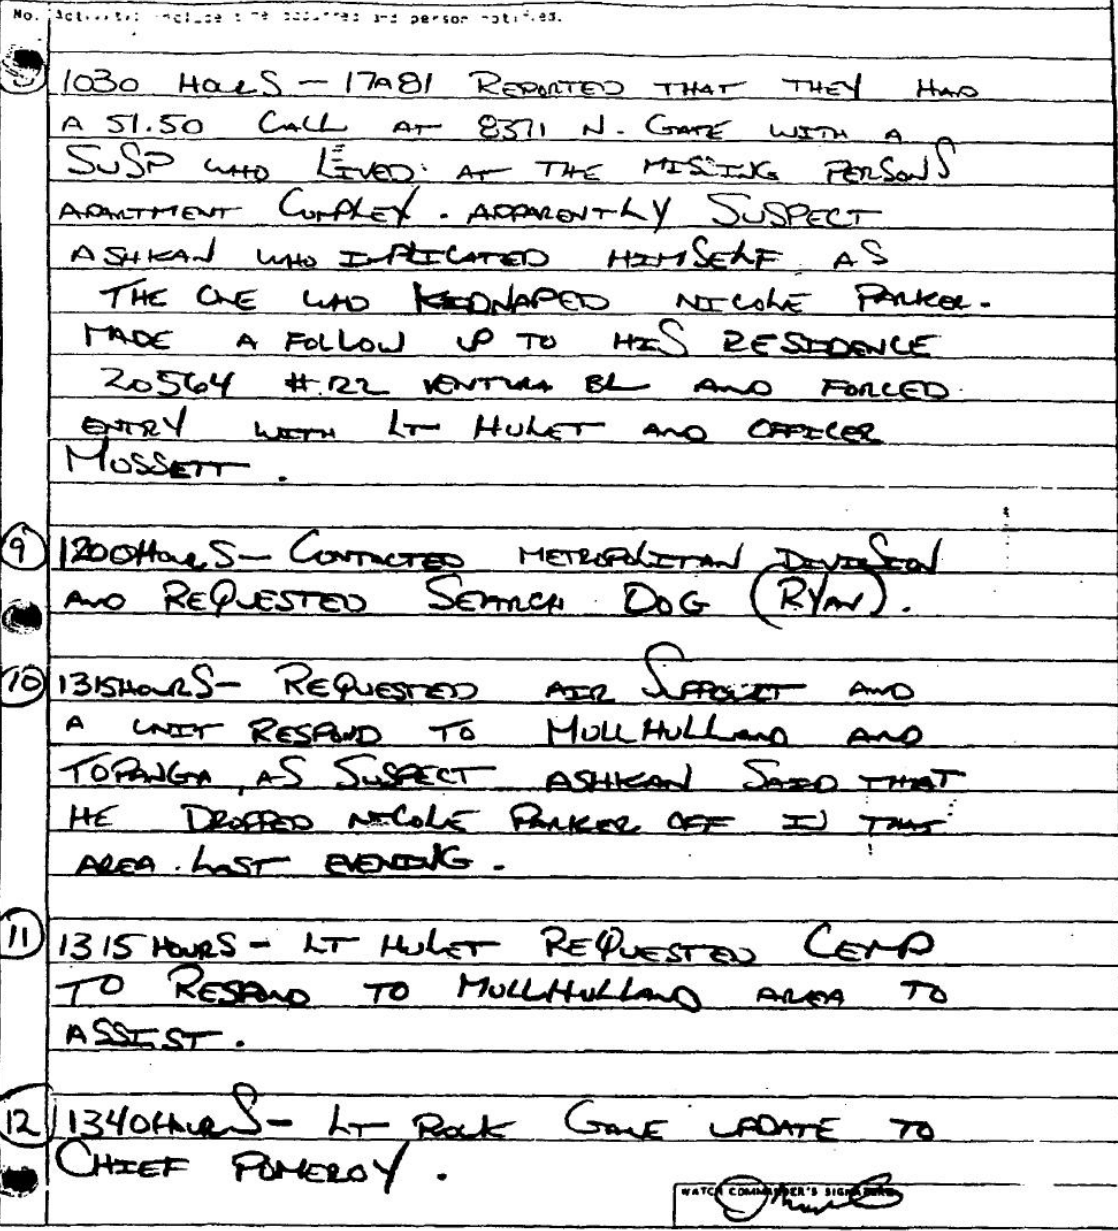 No. Activity: include time occurred and person notified.
1030 HOURS - 17A81 REPORTED THAT THEY HAD
A 51.50 CALL AT 8371 N. GATE WITH A
SUSP WHO LIVED AT THE MISSING PERSONS
APARTMENT COMPLEX. APPARENTLY SUSPECT
ASHKAN WHO IMPLICATED HIMSELF AS
THE ONE WHO KIDNAPED NICOLE PARKER.
MADE A FOLLOW UP TO HIS RESIDENCE
20564 #122 VENTURA BL AND FORCED
ENTRY WITH LT HULET AND OFFICER
MOSSETT.
9 1200 HOURS - CONTACTED METROPOLITAN DIVISION
AND REQUESTED SEARCH DOG (RYAN).
10 1315 HOURS - REQUESTED AIR SUPPORT AND
A UNIT RESPOND TO MULLHULLAND AND
TOPANGA, AS SUSPECT ASHKAN SAID THAT
HE DROPPED NICOLE PARKER OFF IN THAT
AREA LAST EVENING.
11 1315 HOURS - LT HULET REQUESTED CEMP
TO RESPOND TO MULLHULLAND AREA TO
ASSIST.
12 1340 HOURS - LT ROCK GAVE UPDATE TO
CHIEF POMEROY.
WATCH COMMANDER'S SIGNATURE